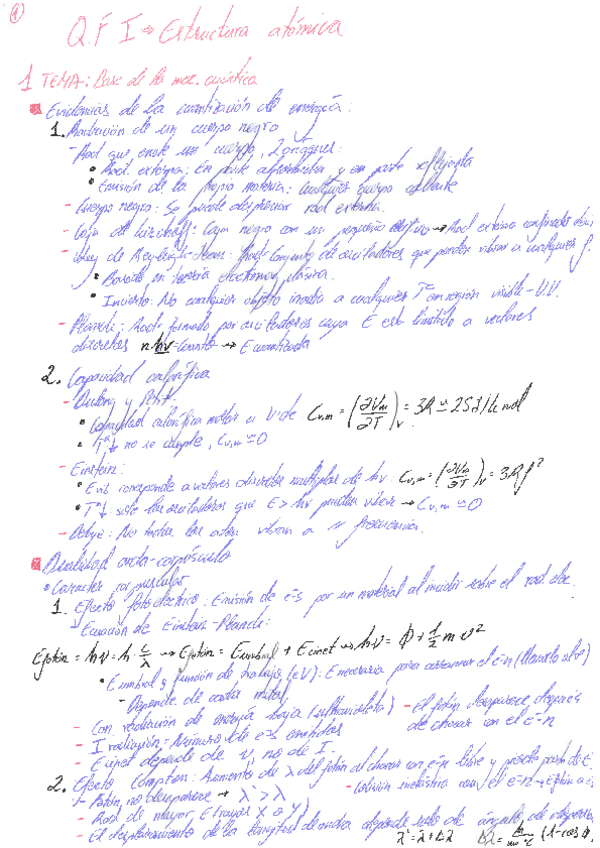 1
Q.F I ⇒ Estructura atómica
1 TEMA: Base de la mec. cuántica
Evidencias de la cuantización de energía:
1. Radiación de un cuerpo negro
- Rad que emite un cuerpo, 2 orígenes:
• Rad. externa: En parte absorbida y en parte reflejada
• Emisión de la propia materia: Cualquier cuerpo caliente
- Cuerpo negro: Se puede despreciar rad externa.
- Caja de : Caja negra con un pequeño → Rad externa
- Ley de Rayleigh-Jeans: Rad Conjunto de osciladores que pueden vibrar a cualquier f.
• Basado en teoría electromag clásica.
• Incierto: No cualquier objeto irradia a cualquier Tª en región visible - U.V.
- Planck: Rad formada por osciladores cuya E está limitada a valores
discretos nhν - cuanto → E cuantizada
2. Capacidad calorífica
- Dulong y Petit
• Capacidad calorífica molar a V de Cv,m = (∂Um/∂T)v = 3R ≃ 25 J/K mol
• Tª↓ no se cumple, Cv,m ≃ 0
- Einstein:
• corresponde a valores discretos múltiplos de hν. Cv,m = (∂Um/∂T)v = 3R f²
• Tª↓ solo los osciladores que E > hν pueden → Cv,m ≃ 0
- Debye: No todos los átom vibran a = frecuencia.
Dualidad onda-corpúsculo
• Carácter corpuscular
1. Efecto fotoeléctrico: Emisión de e-s por un material al incidir sobre el rad elec.
- Ecuación de Einstein-Planck:
Efotón = h·ν = h·c/λ → Efotón = Eumbral + Ecinet → h·ν = Φ + 1/2 m v²
• Eumbral y función de trabajo (eV): E necesaria para arrancar el e-n
- Depende de cada metal
- Con radiación de energía baja (ultravioleta) - El fotón desaparece después
de chocar con el e-n
- I radiación = Número de e-s emitidos
- Ecinet depende de ν, no de I.
2. Efecto Compton: Aumento de λ del fotón al chocar con e-n libre y pierde parte de E
- Fotón no desaparece → λ' > λ - Colisión inelástica con el e-n →
- Rad de mayor E (rayos X o γ)
- El desplazamiento de la longitud de onda depende solo de ángulo de
λ' = λ + Δλ Δλ = (1-cos